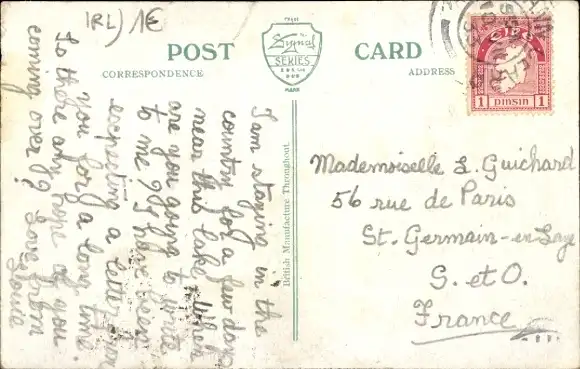 IRL) 1E
POST CARD
CORRESPONDENCE
ADDRESS
Signal
SERIES
British Manufacture Throughout
1 PINSIN 1
I am staying in the
country for a few days
near this lake. When
are you going to write
to me? I have been
expecting a letter from
you for a long time.
Is there any hope of you
coming over? Love from
Mademoiselle L. Guichard
56 rue de Paris
St. Germain-en-Laye
S. et O.
France